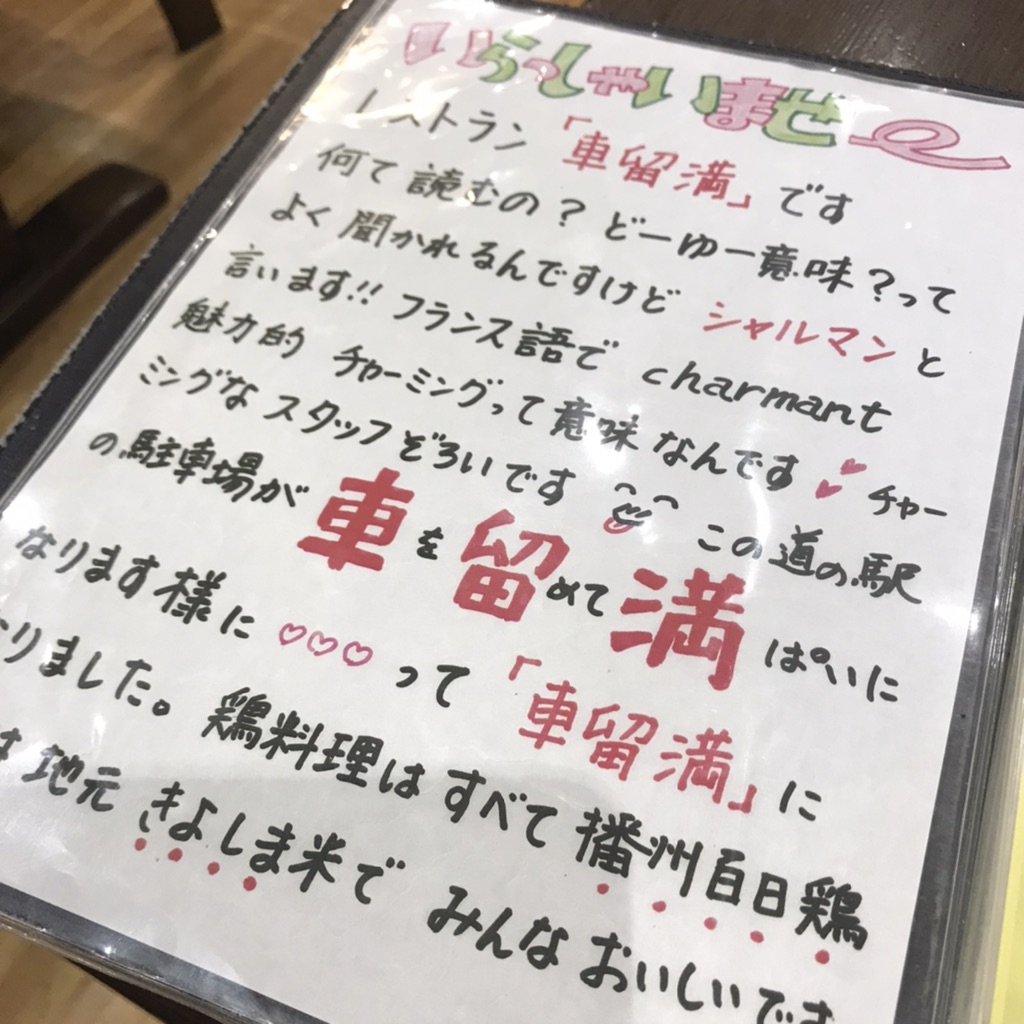 いらっしゃいませ
レストラン「車留満」です
何て読むの？どーゆー意味？って
よく聞かれるんですけど シャルマンと
言います!! フランス語で charmant
魅力的 チャーミングって意味なんです♥♥ チャー
ミングなスタッフぞろいです この道の駅
の駐車場が車を留めて満ぱいに
なります様に♡♡♡って「車留満」に
りました。鶏料理はすべて播州百日鶏
は地元きよしま米で みんなおいしいです